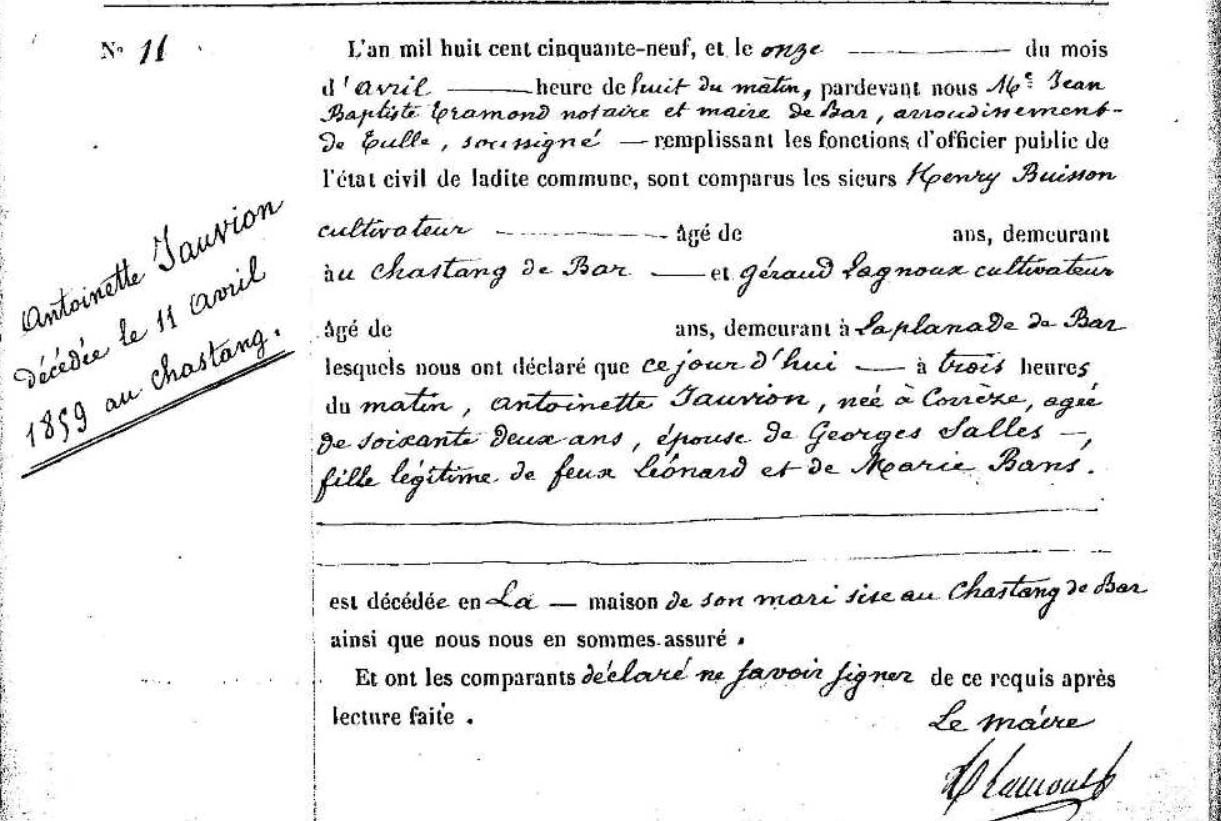 N° 11
Antoinette Jauvion
décédée le 11 avril
1859 au chastang.
L'an mil huit cent cinquante-neuf, et le onze du mois
d'avril heure de huit du matin, pardevant nous Me Jean
Baptiste Tramond notaire et maire de Bar, arrondissement
de Tulle, soussigné — remplissant les fonctions d'officier public de
l'état civil de ladite commune, sont comparus les sieurs Henry Buisson
cultivateur âgé de ans, demeurant
àu Chastang de Bar — et géraud Lagnoux cultivateur
âgé de ans, demeurant à Laplanade de Bar
lesquels nous ont déclaré que ce jour d'hui — à trois heures
du matin, antoinette Jauvion, née à Corrèze, agée
de soixante deux ans, épouse de Georges Salles —,
fille légitime de feux Léonard et de Marie Bans.
est décédée en La — maison de son mari sise au Chastang de Bar
ainsi que nous nous en sommes assuré.
Et ont les comparants déclaré ne savoir signer de ce requis après
lecture faite.
Le maire